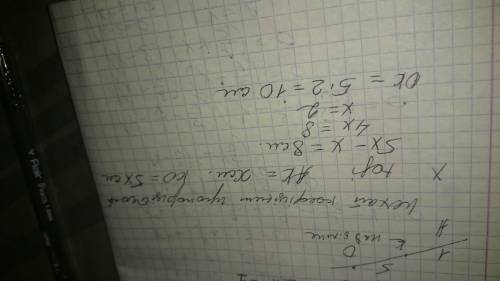 1 5
A K O
Нехай коефіцієнт пропорційності
x тоді AK = x см. KO = 5x см
5x - x = 8 см.
4x = 8
x = 2
OK = 5·2 = 10 см